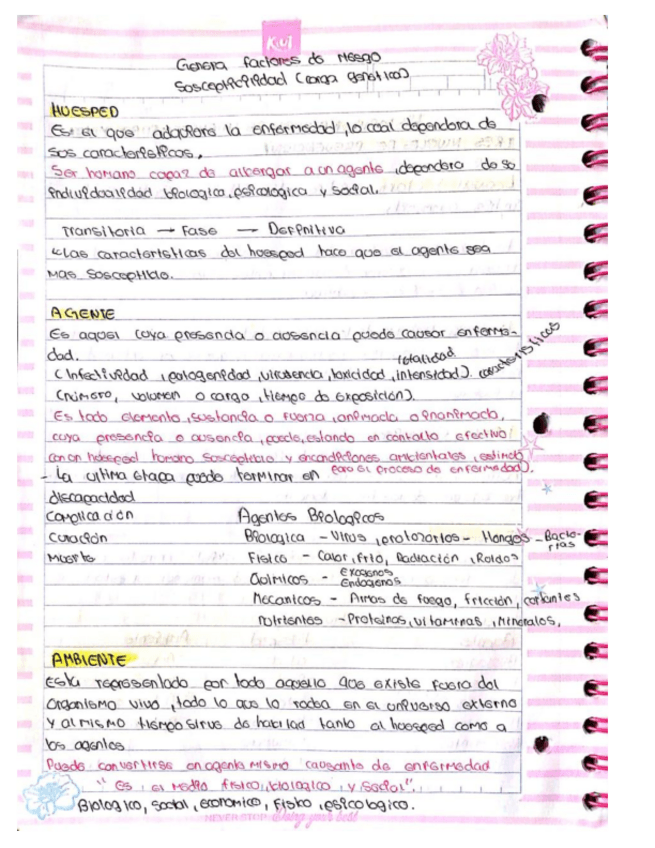 Kiut
Genera factores de riesgo
Susceptibilidad (carga genetica)
HUESPED
Es el que adquiere la enfermedad, lo cual dependera de
sus caracteristicas.
Ser humano capaz de albergar a un agente, dependera de su
individualidad biologica, psicologica y social.
Transitoria → Fase → Definitiva
Las caracteristicas del huesped hace que el agente sea
mas susceptible.
AGENTE
Es aquel cuya presencia o ausencia puede causar enferme-
dad.
(Infectividad, patogenidad, virulencia, toxicidad, intensidad). caracteristicas
letalidad
(número, volumen o carga, tiempo de exposición).
Es todo elemento, sustancia o fuerza, animada o inanimada,
cuya presencia o ausencia, puede, estando en contacto efectivo
con un huesped humano susceptible y en condiciones ambientales,
para el proceso de enfermedad).
- La ultima etapa puede terminar en
discapacidad
Complicación
Curación
Muerte
Agentes Biologicos
Biologica - Virus, protozorios - Hongos - Bacte-
rias
Fisico - Calor, frio, Radiación, Ruidos
Quimicos - Exogenos
Endogenos
Mecanicos - Armas de fuego, fricción, cortantes
nutrientes - Proteinas, vitaminas, Minerales,
AMBIENTE
Esta representado por todo aquello que existe fuera del
organismo vivo, todo lo que lo rodea en el universo externo
y al mismo tiempo sirve de habitad tanto al huesped como a
los agentes
Puede convertirse en agente mismo causante de enfermedad
"Es el medio fisico, biologico, y social".
Biologico, social, economico, fisico, psicologico.
NEVER STOP Doing your best